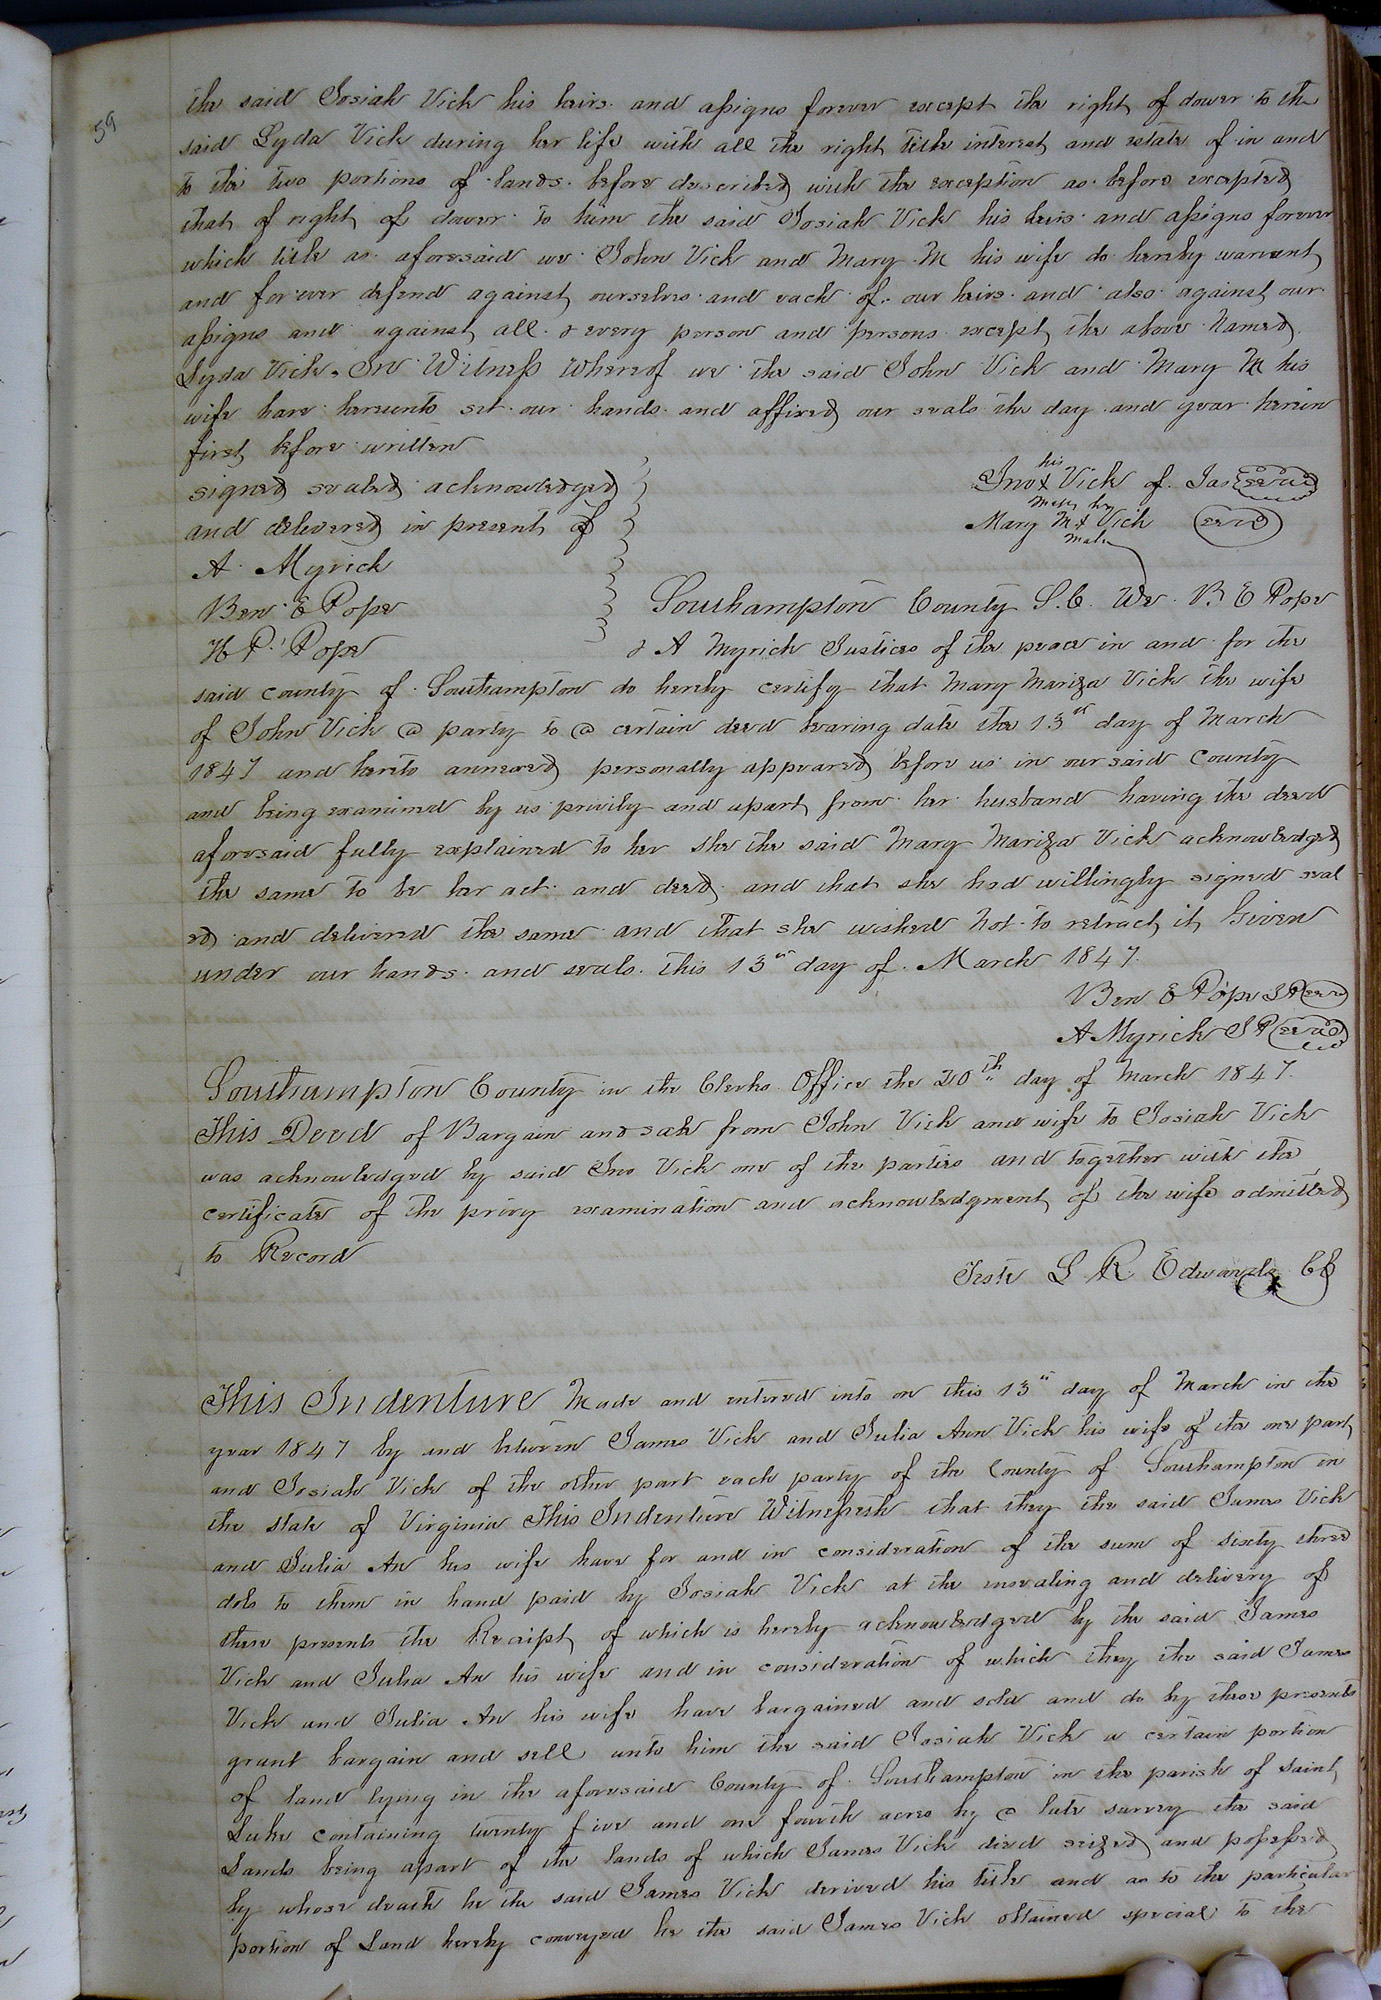 59
the said Josiah Vick his heirs and assigns forever except the right of dower to the
said Lyda Vick during her life with all the right title interest and estate of in and
to the two portions of lands before described with the exception as before excepted
that of right of dower to him the said Josiah Vick his heirs and assigns forever
which title as aforesaid we John Vick and Mary M his wife do hereby warrant
and forever defend against ourselves and each of our heirs and also against our
assigns and against all & every person and persons except the above named
Lyda Vick. In Witness Whereof we the said John Vick and Mary M his
wife have hereunto set our hands and affixed our seals the day and year herein
first before written
signed sealed acknowledged
and delivered in present of
A. Myrick
Ben E Pope
H P Pope
his
Jno X Vick of Jas seal
mark her
Mary M X Vick seal
mark
Southampton County S.C. We B E Pope
& A Myrick Justices of the peace in and for the
said county of Southampton do hereby certify that Mary Mariza Vick the wife
of John Vick a party to a certain deed bearing date the 13th day of March
1847 and hereto annexed personally appeared before us in our said County
and being examined by us privily and apart from her husband having the deed
aforesaid fully explained to her she the said Mary Mariza Vick acknowledged
the same to be her act and deed and that she had willingly signed seal
ed and delivered the same and that she wished not to retract it Given
under our hands and seals this 13th day of March 1847.
Ben E Pope JP seal
A Myrick JP seal
Southampton County in the Clerks Office the 20th day of March 1847.
This Deed of Bargain and sale from John Vick and wife to Josiah Vick
was acknowledged by said Jno Vick one of the parties and together with the
certificate of the privy examination and acknowledgment of the wife admitted
to Record
Teste L R Edwards CC
This Indenture Made and entered into on this 13th day of March in the
year 1847 by and between James Vick and Julia Ann Vick his wife of the one part
and Josiah Vick of the other part each party of the County of Southampton in
the state of Virginia This Indenture Witnesseth that they the said James Vick
and Julia An his wife have for and in consideration of the sum of sixty three
dols to them in hand paid by Josiah Vick at the insealing and delivery of
these presents the Receipt of which is hereby acknowledged by the said James
Vick and Julia An his wife and in consideration of which they the said James
Vick and Julia An his wife have bargained and sold and do by these presents
grant bargain and sell unto him the said Josiah Vick a certain portion
of land lying in the aforesaid County of Southampton in the parish of Saint
Luke containing twenty five and one fourth acres by a late survey the said
Lands being apart of the lands of which James Vick died seized and possessed
by whose death he the said James Vick derived his title and as to the particular
portion of Land hereby conveyed he the said James Vick obtained special to the